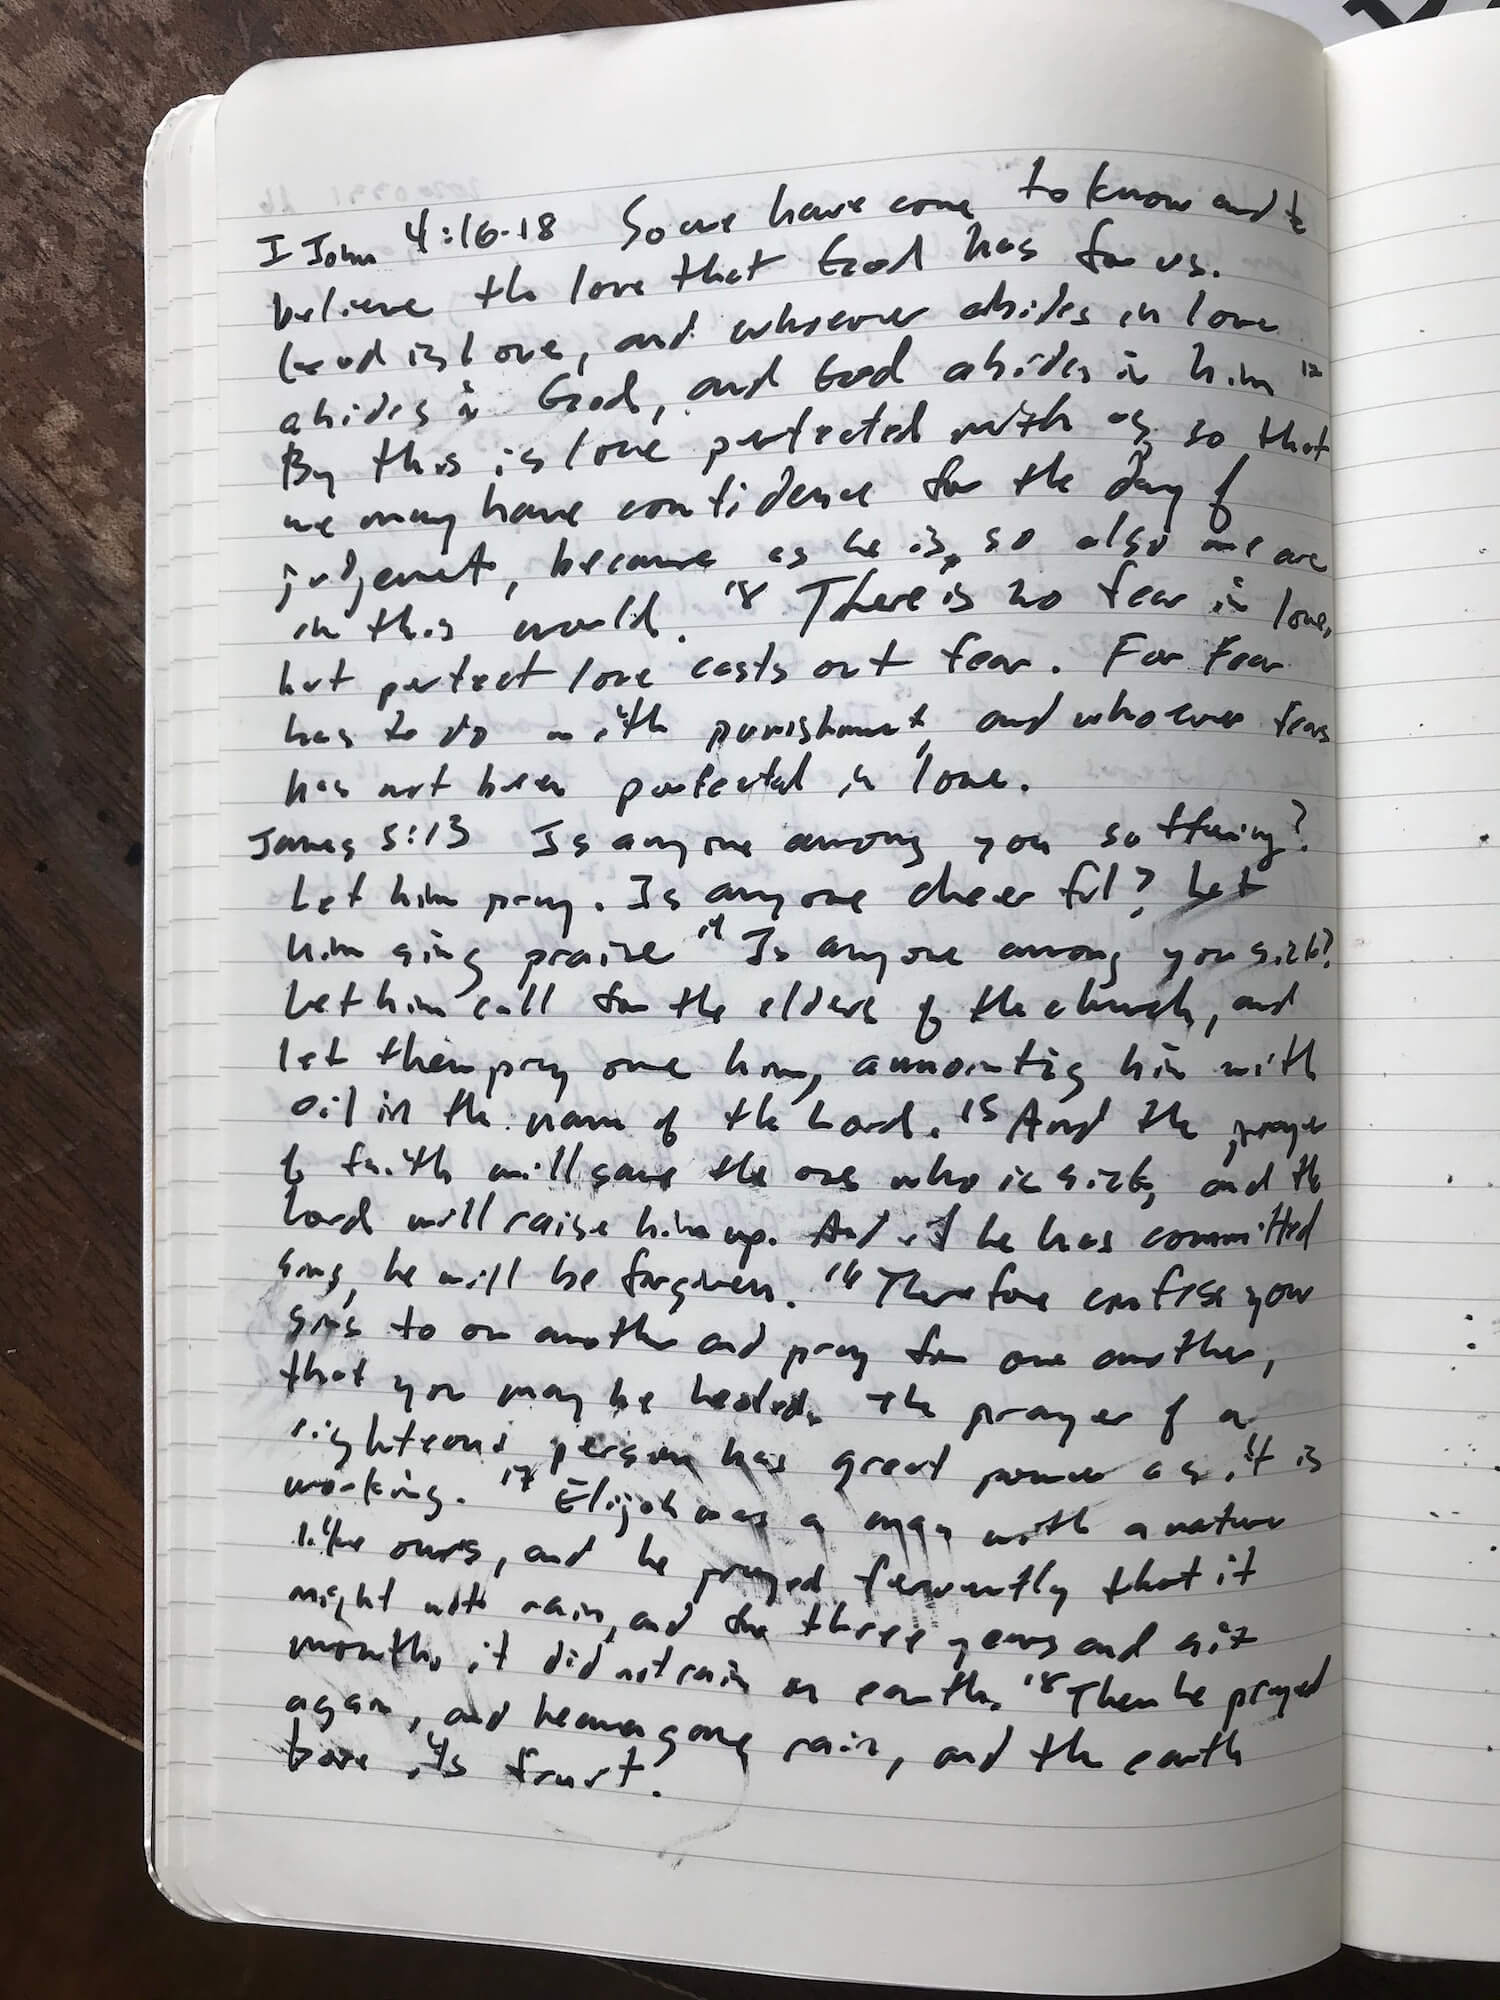 I John 4:16-18 So we have come to know and to
believe the love that God has for us.
God is love, and whoever abides in love
abides in God, and God abides in him 17
By this is love perfected with us, so that
we may have confidence for the day of
judgement, because as he is, so also we are
in this world. 18 There is no fear in love,
but perfect love casts out fear. For fear
has to do with punishment, and whoever fears
has not been perfected in love.
James 5:13 Is anyone among you suffering?
Let him pray. Is anyone cheerful? Let
him sing praise 14 Is anyone among you sick?
Let him call for the elders of the church, and
let them pray over him, annointing him with
oil in the name of the Lord. 15 And the prayer
of faith will save the one who is sick, and the
Lord will raise him up. And if he has committed
sins, he will be forgiven. 16 Therefore confess your
sins to one another and pray for one another,
that you may be healed. The prayer of a
righteous person has great power as it is
working. 17 Elijah was a man with a nature
like ours, and he prayed fervently that it
might not rain, and for three years and six
months it did not rain on earth. 18 Then he prayed
again, and heaven gave rain, and the earth
bore its fruit.